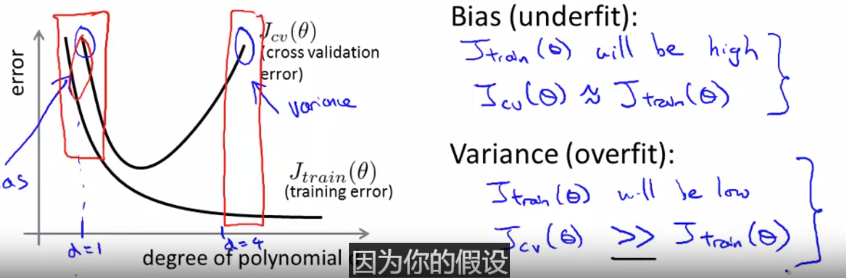 error
J_cv(θ)
(cross validation
error)
variance
as
J_train(θ)
(training error)
d=1
d=4
degree of polynomial
Bias (underfit):
J_train(θ) will be high
J_cv(θ) ≈ J_train(θ)
Variance (overfit):
J_train(θ) will be low
J_cv(θ) >> J_train(θ)
因为你的假设